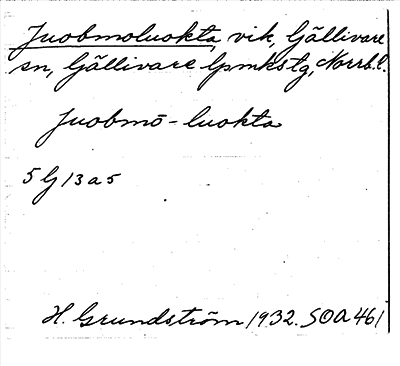 Juobmoluokta, vik, Gällivare
sn, Gällivare lpmkstg, Norrb. l.
Juobmō-luokta
5 G 13 a 5
H. Grundström 1932. SOA 461